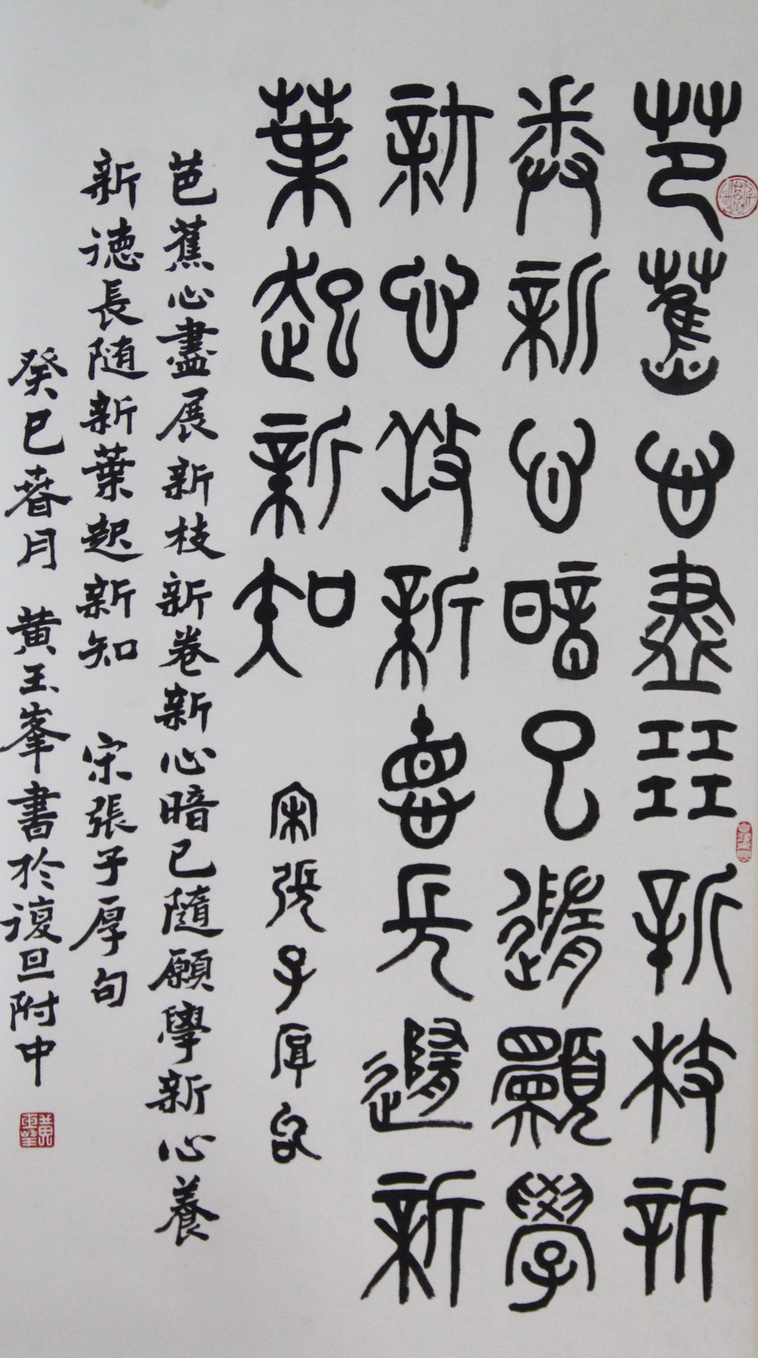 芭蕉心盡展新枝新
卷新心暗已隨願學
新心養新德長隨新
葉起新知
宋張子厚句
芭蕉心盡展新枝新卷新心暗已隨願學新心養
新德長随新葉起新知 宋張子厚句
癸巳春月 黄玉峯書於復旦附中